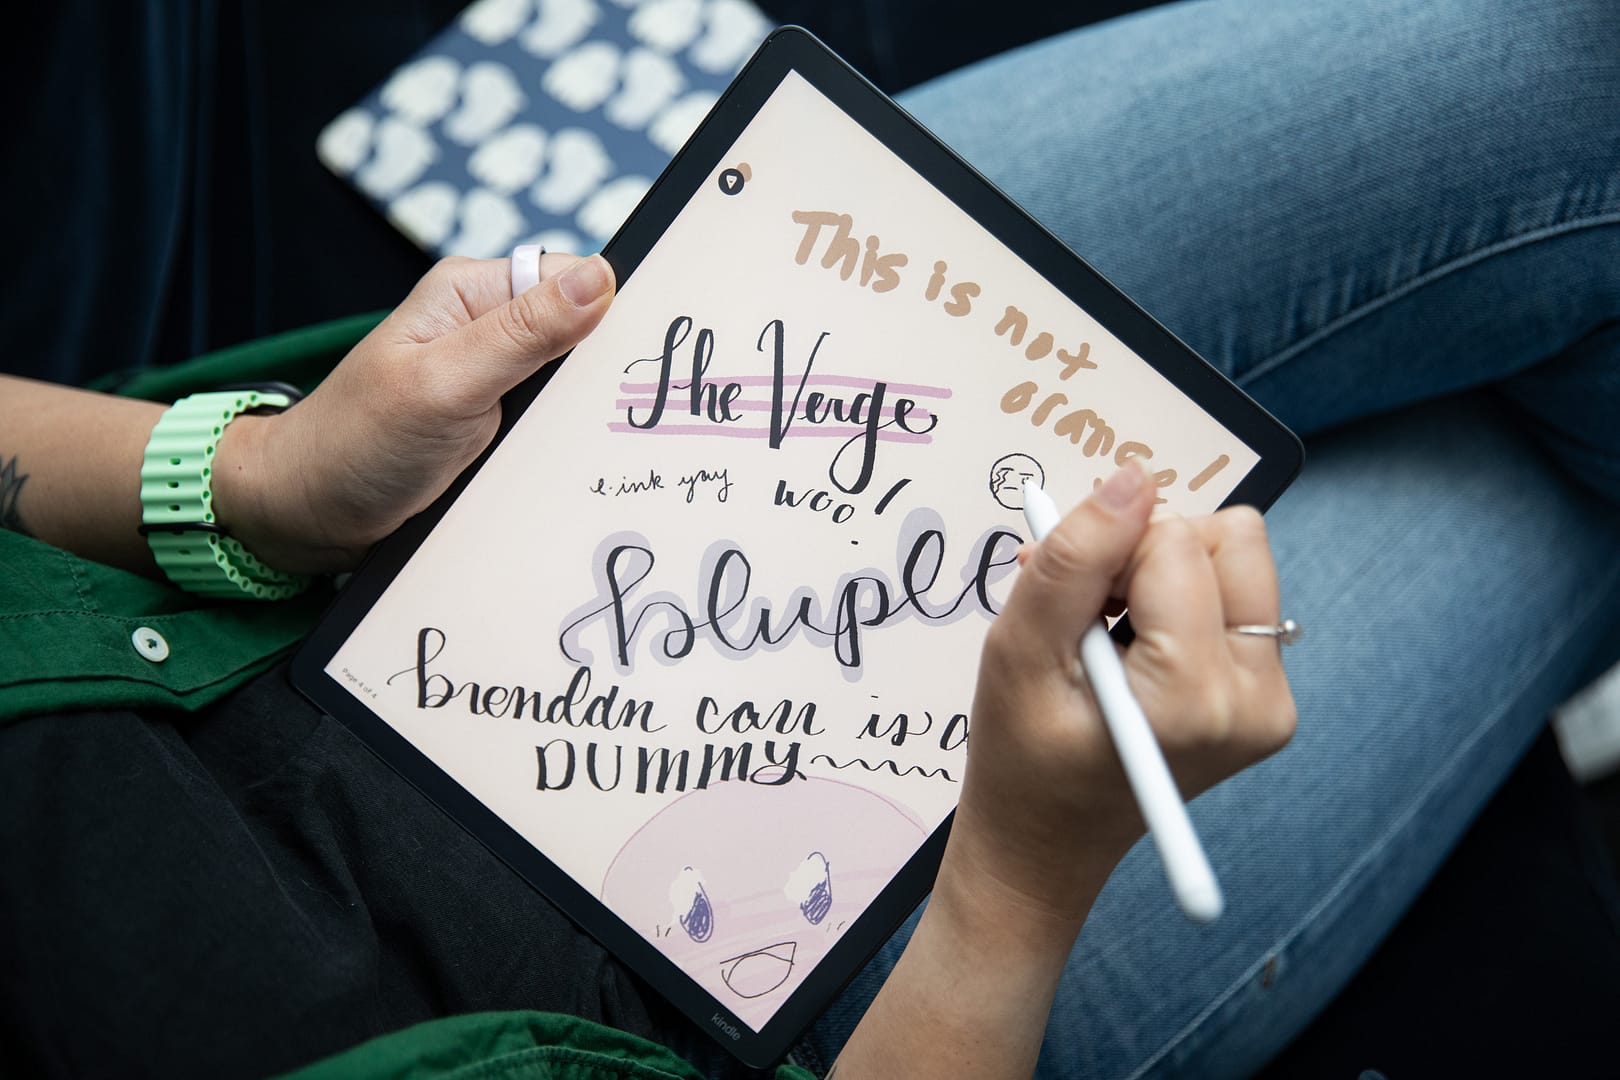 This is not
orange!
The Verge
e-ink yay woo!
brendan carr is a
DUMMY
Page 4 of 4
kindle